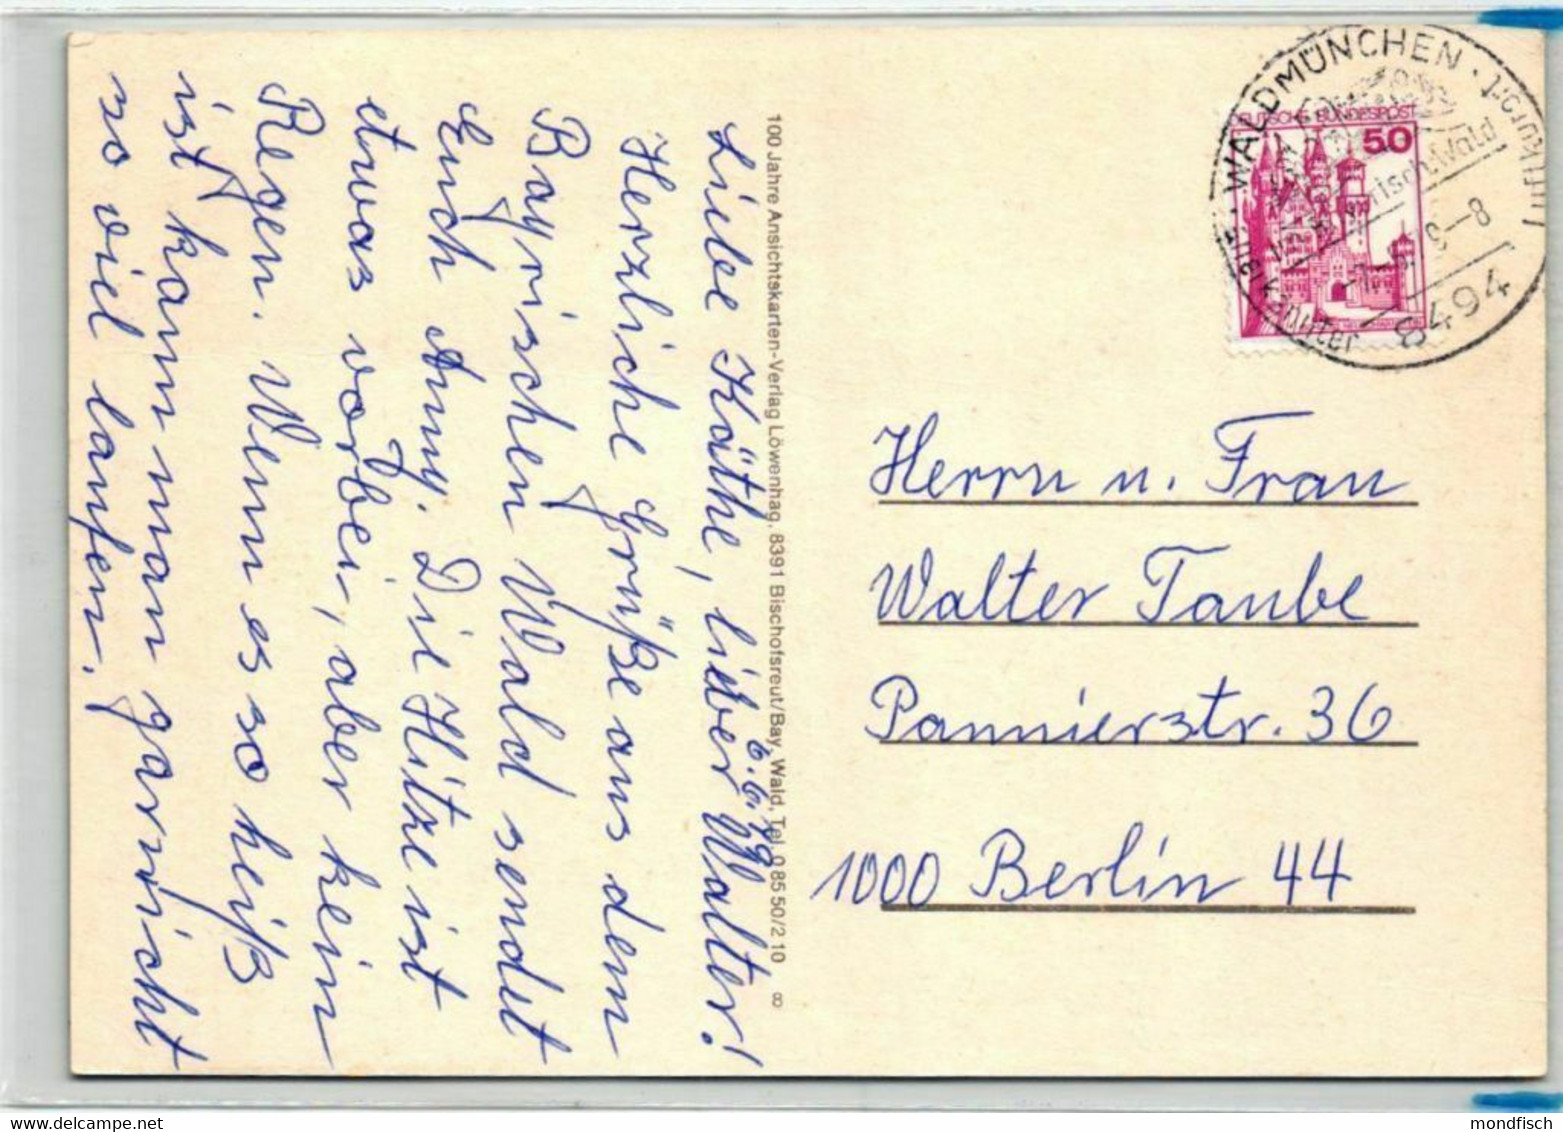 6.6.79
Liebe Käthe, lieber Walter!
Herzliche Grüße aus dem
Bayrischen Wald sendet
Euch Anny. Die Hitze ist
etwas vorbei, aber kein
Regen. Wenn es so heiß
ist kann man garnicht
so viel laufen.
100 Jahre Ansichtskarten-Verlag Löwenhag, 8391 Bischofsreut/Bay. Wald, Tel. 0 85 50/2 10 8
WALDMÜNCHEN · Luftkurort
DEUTSCHE BUNDESPOST
50
8494
Herrn u. Frau
Walter Taube
Pannierstr. 36
1000 Berlin 44
mondfisch